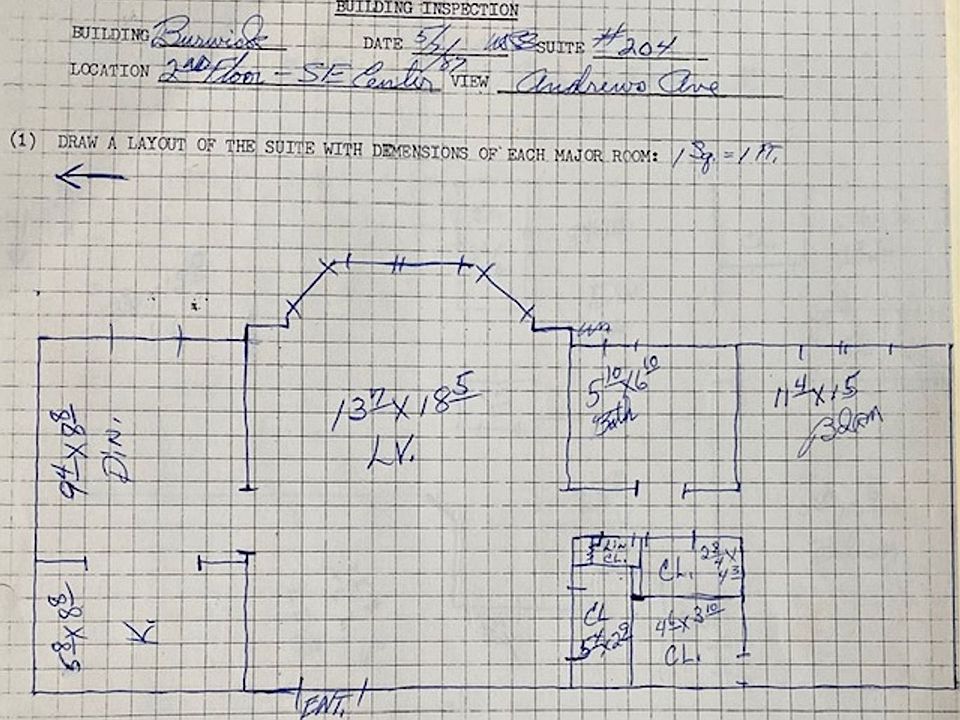 BUILDING INSPECTION
BUILDING Burwick DATE 5/21/87 SUITE #204
LOCATION 2ND Floor - SE Center VIEW Andrews Ave
(1) DRAW A LAYOUT OF THE SUITE WITH DEMENSIONS OF EACH MAJOR ROOM: 1 Sq. = 1 FT.
9 4 X 8 8
DIN.
13 7 X 18 5
LV.
5 10 X 6 10
Bath
11 4 X 15
BDRM
5 8 X 8 8
K.
LIN
CL.
CL.
2 8 X
4 3
CL
5 4 X 2 9
4 6 X 3 10
CL.
ENT.